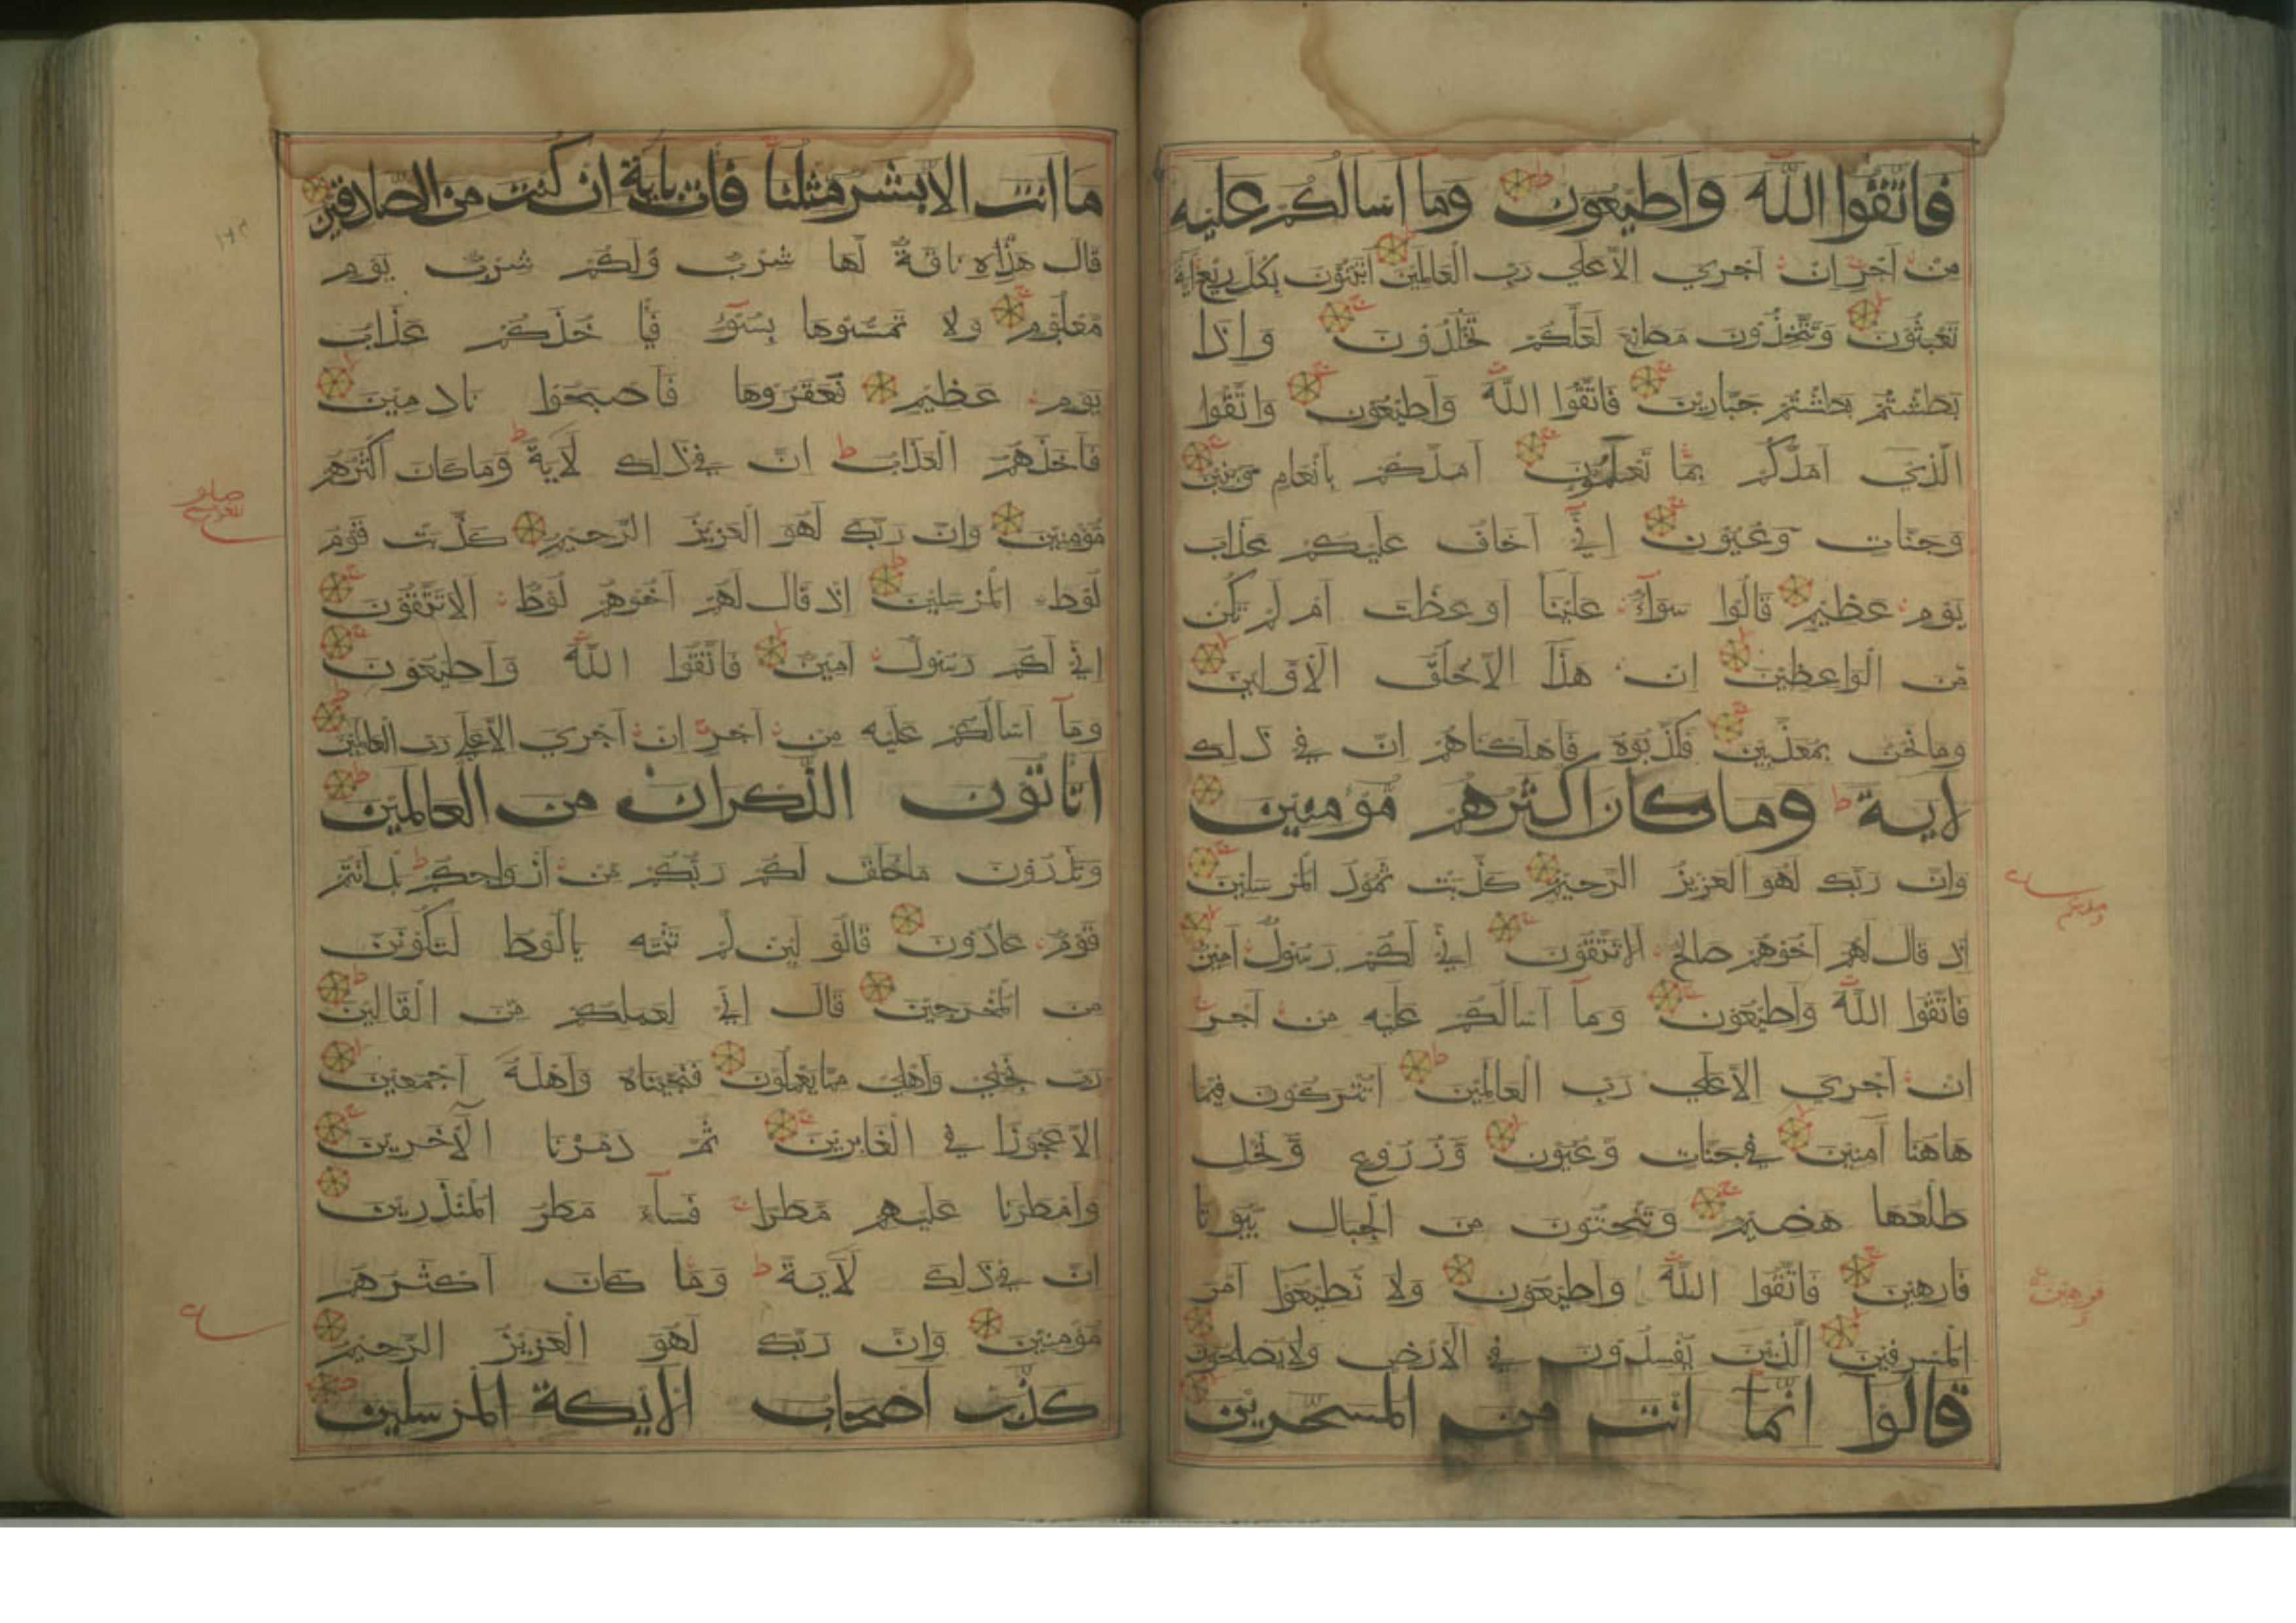 فاتقوا الله واطيعون وما اسالكم عليه
من اجر ان اجري الا علي رب العالمين اتبنون بكل ريع اية
تعبثون وتتخذون مصانع لعلكم تخلدون واذا
بطشتم بطشتم جبارين فاتقوا الله واطيعون واتقوا
الذي امدكم بما تعلمون امدكم بانعام وبنين
وجنات وعيون اني اخاف عليكم عذاب
يوم عظيم قالوا سوآء علينا اوعظت ام لم تكن
من الواعظين ان هذا الا خلق الاولين
وما نحن بمعذبين فكذبوه فاهلكناهم ان في ذلك
لاية وما كان اكثرهم مؤمنين
وان ربك لهو العزيز الرحيم كذبت ثمود المرسلين
اذ قال لهم اخوهم صالح الا تتقون اني لكم رسول امين
فاتقوا الله واطيعون وما اسالكم عليه من اجر
ان اجري الا علي رب العالمين اتتركون فيما
هاهنا آمنين في جنات وعيون وزروع ونخل
طلعها هضيم وتنحتون من الجبال بيوتا
فارهين فاتقوا الله واطيعون ولا تطيعوا امر
المسرفين الذين يفسدون في الارض ولا يصلحون
قالوا انما انت من المسحرين
فرهين
ما انت الا بشر مثلنا فات باية ان كنت من الصادقين
قال هذه ناقة لها شرب ولكم شرب يوم
معلوم ولا تمسوها بسوء فيا خذكم عذاب
يوم عظيم فعقروها فاصبحوا نادمين
فاخذهم العذاب ان في ذلك لاية وما كان اكثرهم
مؤمنين وان ربك لهو العزيز الرحيم كذبت قوم
لوط المرسلين اذ قال لهم اخوهم لوط الا تتقون
اني لكم رسول امين فاتقوا الله واطيعون
وما اسالكم عليه من اجر ان اجري الا علي رب العالمين
اتاتون الذكران من العالمين
وتذرون ما خلق لكم ربكم من ازواجكم بل انتم
قوم عادون قالو لين لم تنته يالوط لتكونن
من المخرجين قال اني لعملكم من القالين
رب نجني واهلي مما يعملون فنجيناه واهله اجمعين
الا عجوزا في الغابرين ثم دمرنا الآخرين
وامطرنا عليهم مطرا فسآء مطر المنذرين
ان في ذلك لاية وما كان اكثرهم
مؤمنين وان ربك لهو العزيز الرحيم
كذب اصحاب الايكة المرسلين